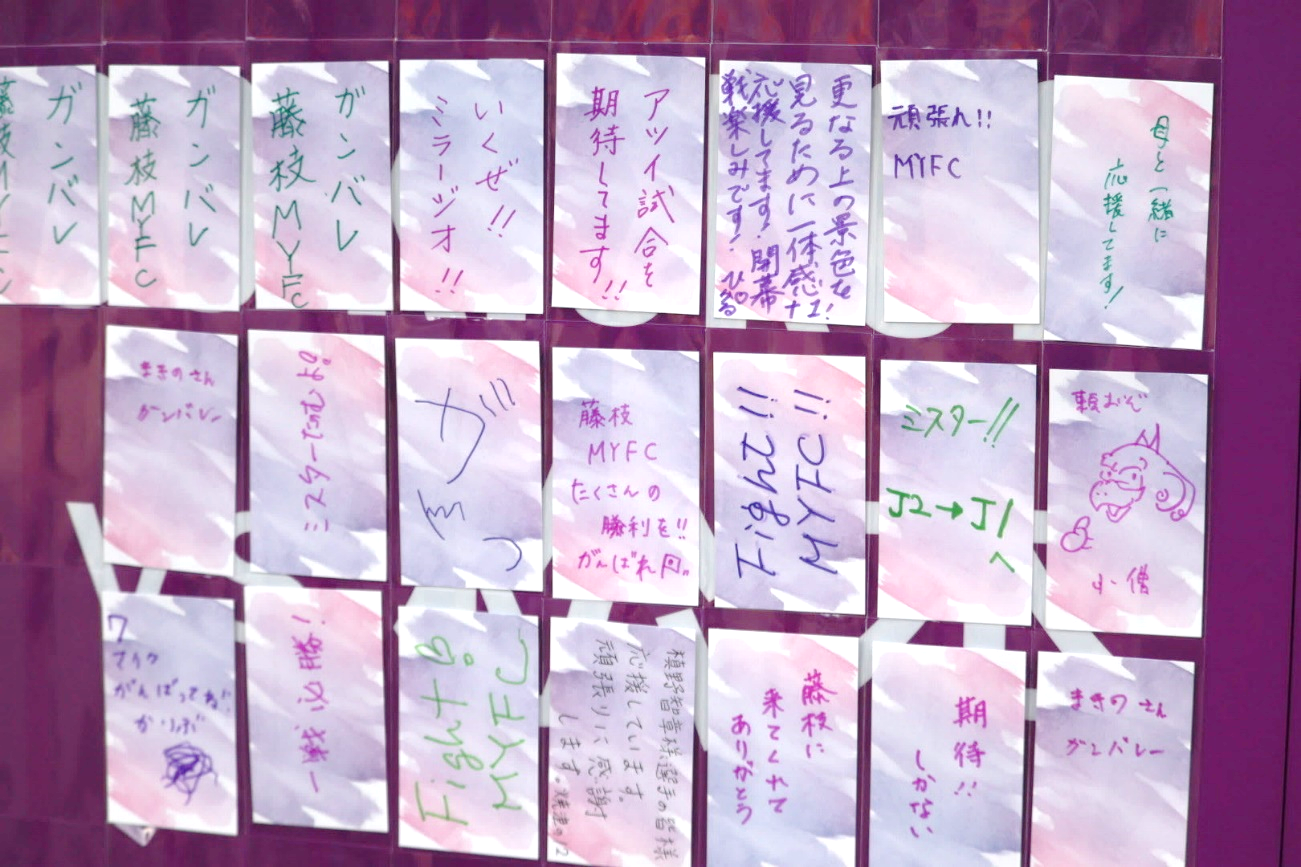 ガンバレ
藤枝MYFC
ガンバレ
藤枝MYFC
ガンバレ
藤枝MYFC
いくぜ!!
ミラージオ!!
アツイ試合を
期待してます!!
更なる上の景色を
見るために一体感ナ!
応援してます!開幕
戦楽しみです!
頑張れ!!
MYFC
母と一緒に
応援してます!
まきのさん
ガンバレー
ミスターたのむよ
藤枝
MYFC
たくさんの
勝利を!!
がんばれ
MYFC!!
Fight!!
ミスター!!
J2→J1
へ
頼むぞ
小僧
7
マイク
がんばってね!!
かりぶ
一戦必勝!
Fight
MYFC
槙野智章様選手の皆様
応援しています。
頑張りに感謝
します。
藤枝に
来てくれて
ありがとう
期待!!
しかない
まきのさん
ガンバレー